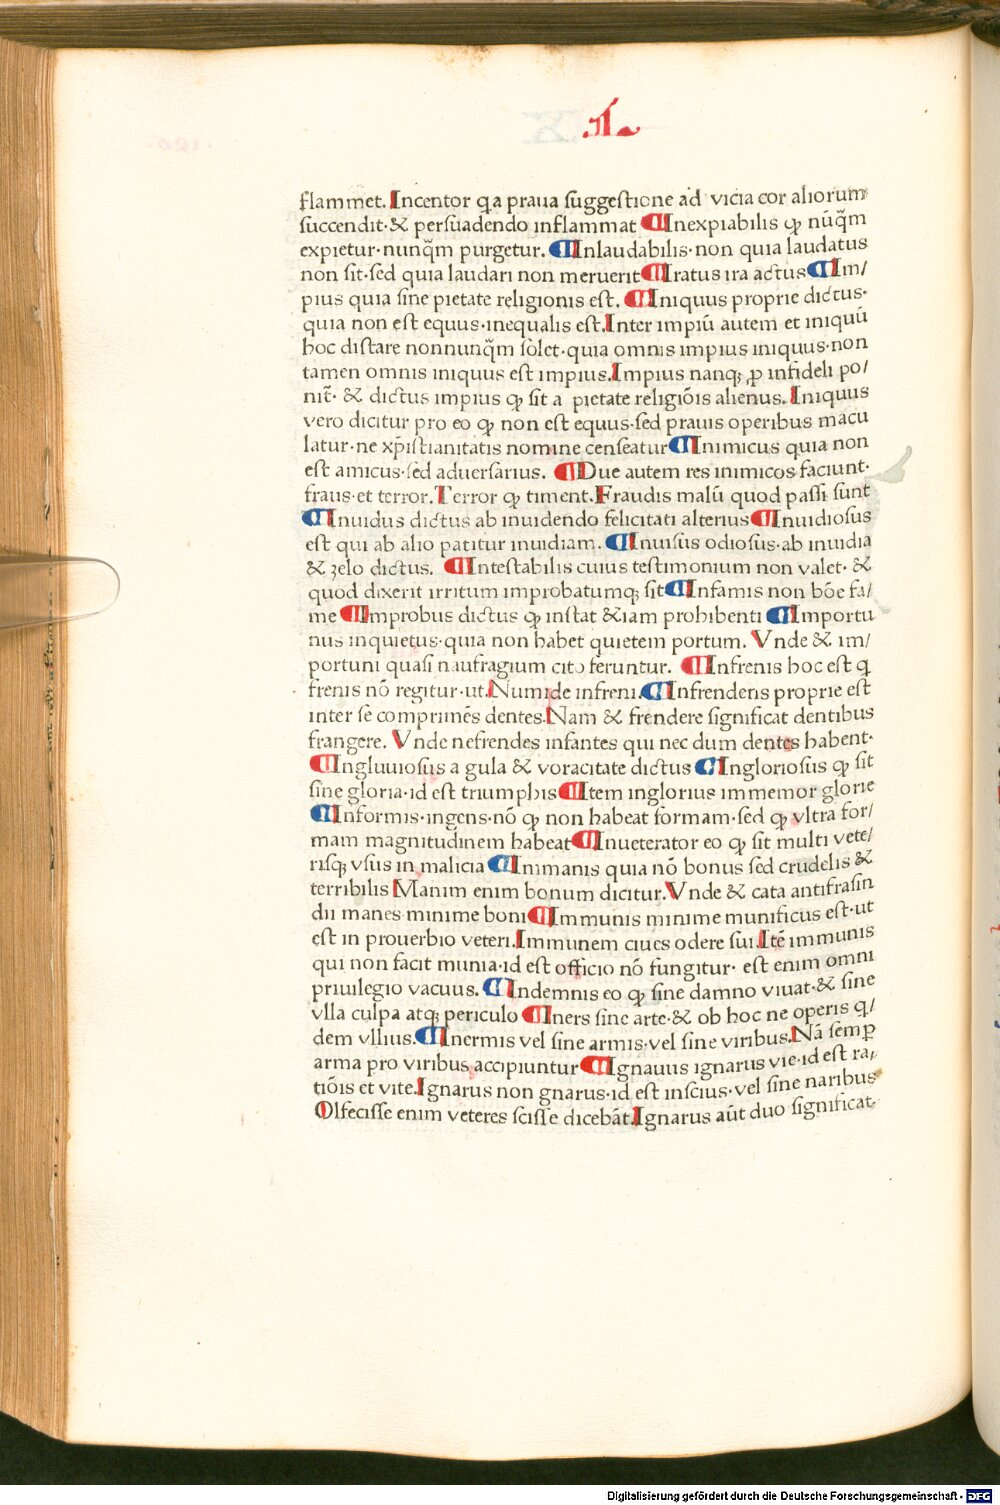 .I.
flammet. Incentor qa praua suggestione ad vicia cor aliorum
succendit·& persuadendo inflammat ¶Inexpiabilis ꝙ nūq̃m
expietur·nunq̃m purgetur. ¶Inlaudabilis·non quia laudatus
non sit·sed quia laudari non meruerit¶Iratus ira actus¶Im/
pius quia sine pietate religionis est. ¶Iniquus proprie dictus·
quia non est equus·inequalis est.Inter impiū autem et iniquū
hoc distare nonnunq̃m solet·quia omnis impius iniquus·non
tamen omnis iniquus est impius.Impius nanqꝫ ꝓ infideli po/
nit̄· & dictus impius ꝙ sit a pietate religiōis alienus. Iniquus
vero dicitur pro eo ꝙ non est equus·sed prauis operibus macu
latur·ne xp̄istianitatis nomine censeatur¶Inimicus quia non
est amicus·sed aduersarius. ¶Due autem res inimicos faciunt·
fraus·et terror.Terror ꝙ timent.Fraudis malū quod passi sunt
¶Inuidus dictus ab inuidendo felicitati alterius¶Inuidiosus
est qui ab alio patitur inuidiam. ¶Inuisus odiosus·ab inuidia
& zelo dictus. ¶Intestabilis cuius testimonium non valet· &
quod dixerit irritum improbatumqꝫ sit¶Infamis non bōe fa/
me ¶Improbus dictus ꝙ instat &iam prohibenti ¶Importu
nus inquietus·quia non habet quietem portum. Vnde & im/
portuni quasi naufragium cito feruntur. ¶Infrenis hoc est q
frenis nō regitur·ut.Numide infreni.¶Infrendens proprie est
inter se comprimēs dentes.Nam & frendere significat dentibus
frangere. Vnde nefrendes infantes qui nec dum dentes habent·
¶Ingluuiosus a gula & voracitate dictus ¶Ingloriosus ꝙ sit
sine gloria·id est triumphis¶Item inglorius immemor glorie
¶Informis·ingens·nō ꝙ non habeat formam·sed ꝙ vltra for/
mam magnitudinem habeat¶Inueterator eo ꝙ sit multi vete/
risqꝫ vsus in malicia ¶Inimanis quia nō bonus sed crudelis &
terribilis Manim enim bonum dicitur.Vnde & cata antifrasin
dii manes·minime boni¶Immunis minime munificus est·ut
est in prouerbio veteri.Immunem ciues odere sui.Itē immunis
qui non facit munia·id est officio nō fungitur· est enim omni
priuilegio vacuus. ¶Indemnis eo ꝙ sine damno viuat·& sine
vlla culpa atqꝫ periculo ¶Iners sine arte·& ob hoc ne operis q/
dem vllius.¶Inermis vel sine armis·vel sine viribus.Nā semꝑ
arma pro viribus accipiuntur ¶Ignauus ignarus vie·id est ra/
tiōis et vite.Ignarus non gnarus·id est inscius·vel sine naribus
Olfecisse enim veteres scisse dicebāt.Ignarus aūt duo significat·
Digitalisierung gefördert durch die Deutsche Forschungsgemeinschaft - DFG